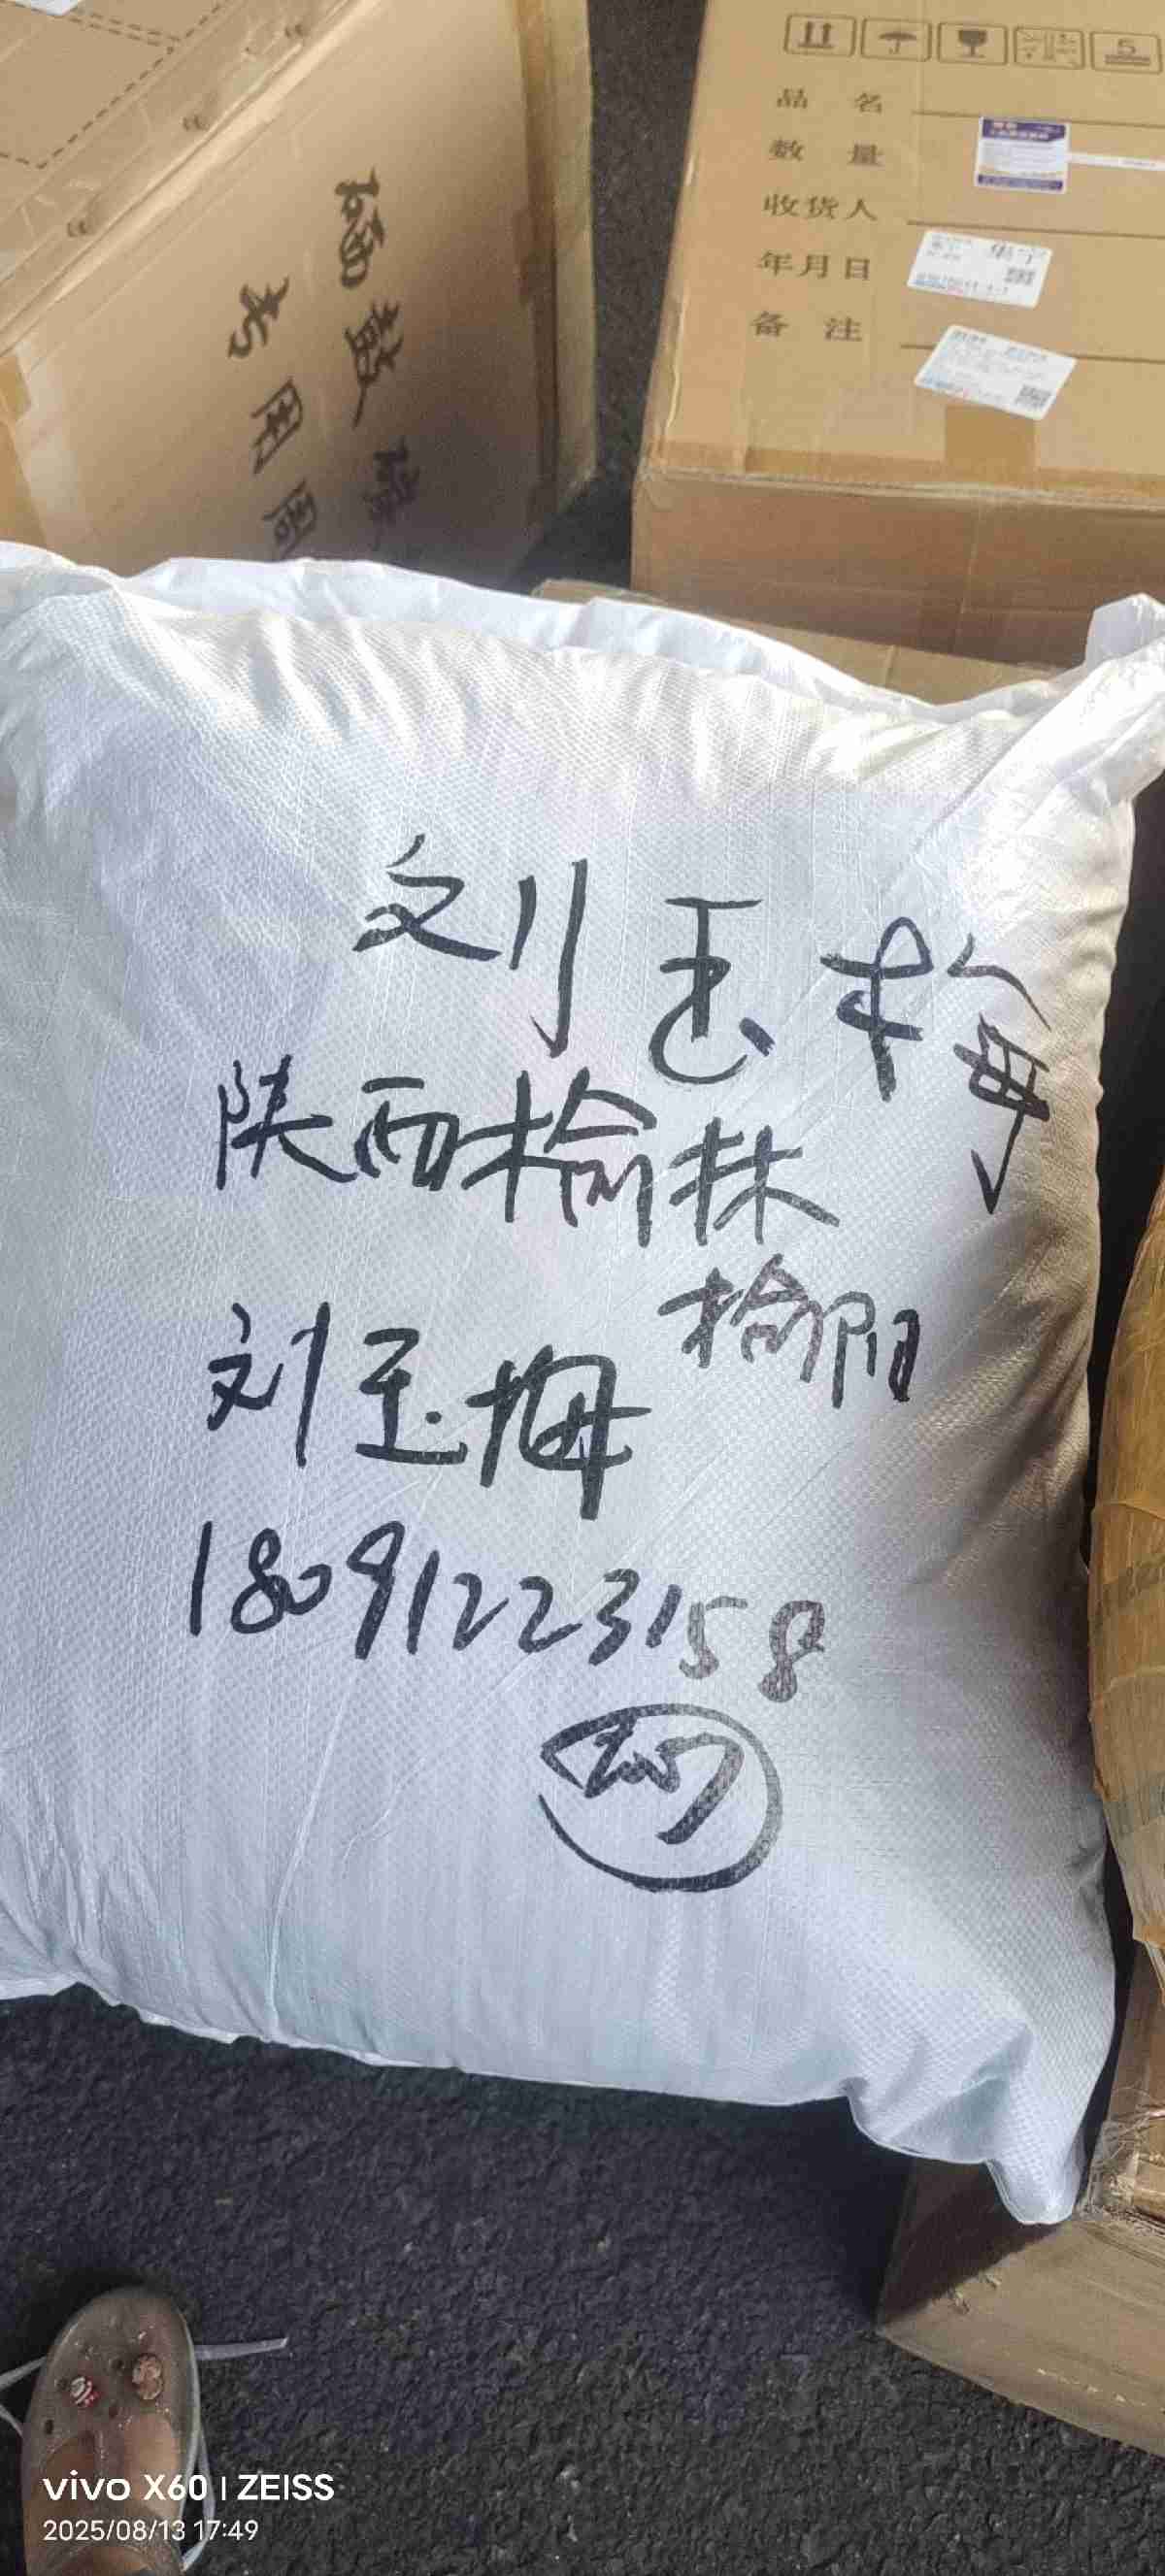 品 名
数 量
收货人
年月日
备 注
5
专用周
刘玉梅
陕西榆林
榆阳
刘玉梅
18091223158
vivo X60 | ZEISS
2025/08/13 17:49